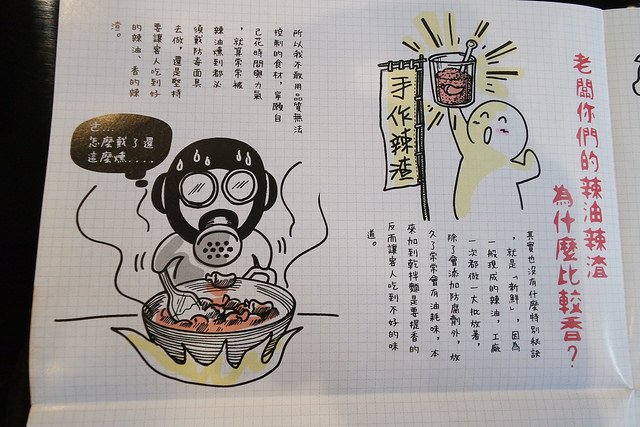 老闆你們的辣油辣渣
為什麼比較香？
手作辣渣
其實也沒有什麼特別秘訣
，就是「新鮮」，因為
一般現成的辣油，工廠
一次都做一大批放著，
除了會添加防腐劑外，放
久了常常會有油耗味，本
來加到乾拌麵是要提香的
反而讓客人吃到不好的味
道。
所以我不敢用品質無法
控制的食材，寧願自
己花時間與力氣
，就算常常被
辣油燻到都必
須戴防毒面具
去做，還是堅持
要讓客人吃到好
的辣油、香的辣
渣。
怎麼戴了還
這麼燻....